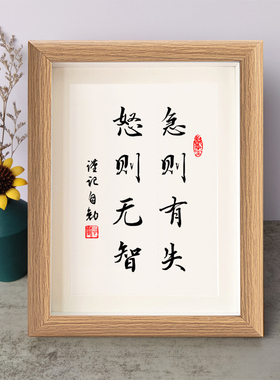 急则有失
怒则无智
谨记自勉